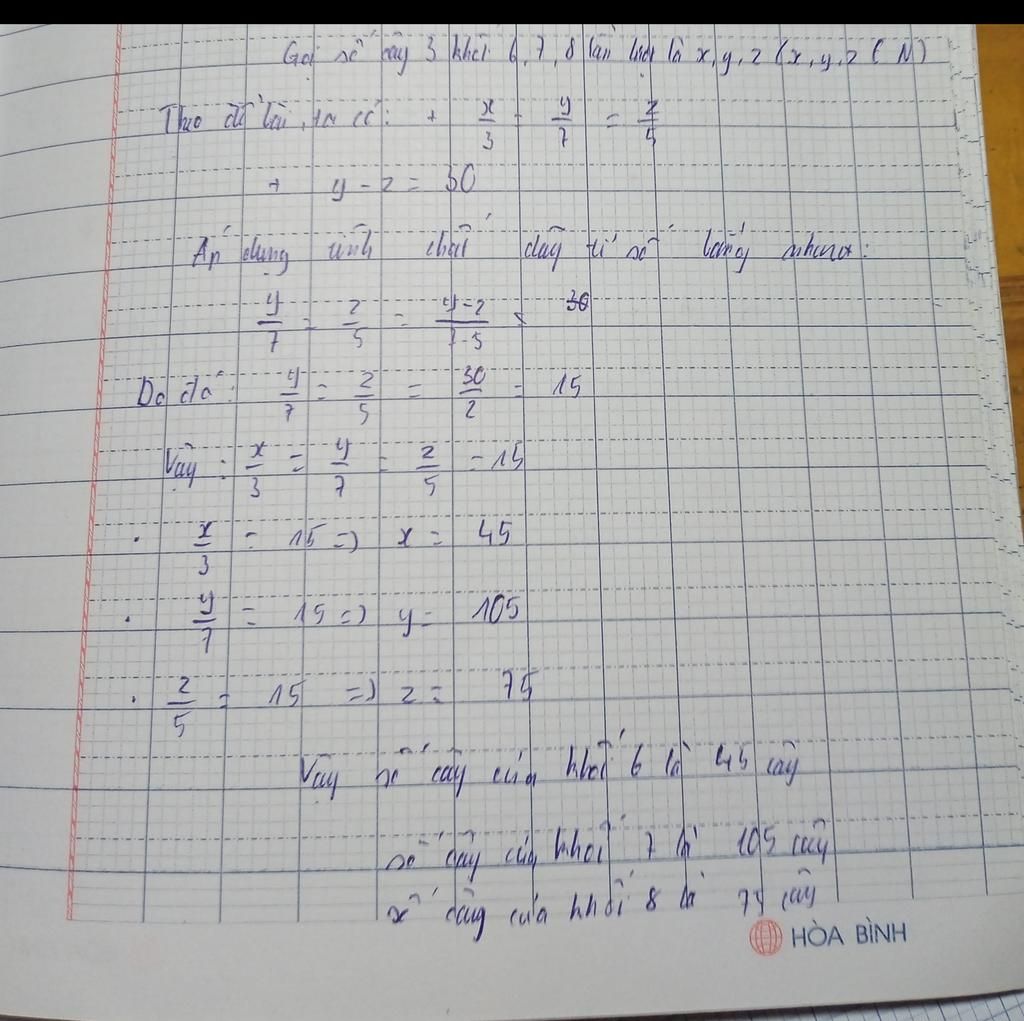 Gọi số cây 3 khối 6, 7, 8 lần lượt là x, y, z (x, y, z ∈ N)
Theo đề bài, ta có: + x/3 = y/7 = z/5
+ y - z = 30
Áp dụng tính chất dãy tỉ số bằng nhau:
y/7 = z/5 = (y-z)/(7-5) = 30
Do đó: y/7 = z/5 = 30/2 = 15
Vậy: x/3 = y/7 = z/5 = 15
. x/3 = 15 => x = 45
. y/7 = 15 => y = 105
. z/5 = 15 => z = 75
Vậy số cây của khối 6 là 45 cây
số cây của khối 7 là 105 cây
số cây của khối 8 là 75 cây
HÒA BÌNH